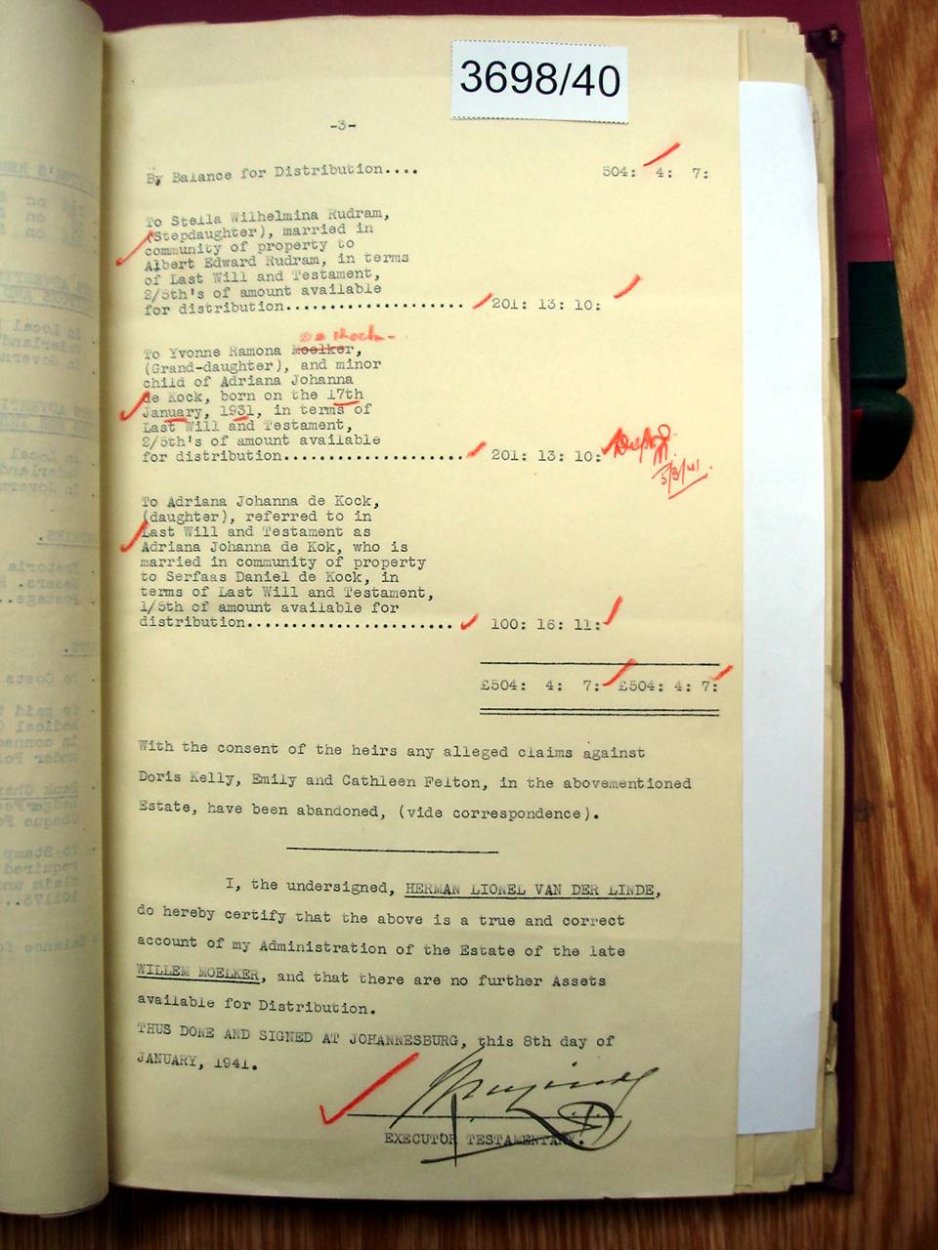 3698/40
-3-
By Balance for Distribution.... 504: 4: 7:
To Stella Wilhelmina Rudram,
(Stepdaughter), married in
community of property to
Albert Edward Rudram, in terms
of Last Will and Testament,
2/5th's of amount available
for distribution.................... 201: 13: 10:
De Kock
To Yvonne Ramona Moelker,
(Grand-daughter), and minor
child of Adriana Johanna
de Kock, born on the 17th
January, 1931, in terms of
Last Will and Testament,
2/5th's of amount available
for distribution.................... 201: 13: 10:
5/3/41.
To Adriana Johanna de Kock,
(daughter), referred to in
Last Will and Testament as
Adriana Johanna de Kok, who is
married in community of property
to Serfaas Daniel de Kock, in
terms of Last Will and Testament,
1/5th of amount available for
distribution....................... 100: 16: 11:
£504: 4: 7: £504: 4: 7:
With the consent of the heirs any alleged claims against
Doris Kelly, Emily and Cathleen Felton, in the abovementioned
Estate, have been abandoned, (vide correspondence).
I, the undersigned, HERMAN LIONEL VAN DER LINDE,
do hereby certify that the above is a true and correct
account of my Administration of the Estate of the late
WILLEM MOELKER, and that there are no further Assets
available for Distribution.
THUS DONE AND SIGNED AT JOHANNESBURG, this 8th day of
JANUARY, 1941.
EXECUTOR TESTAMENTARY.